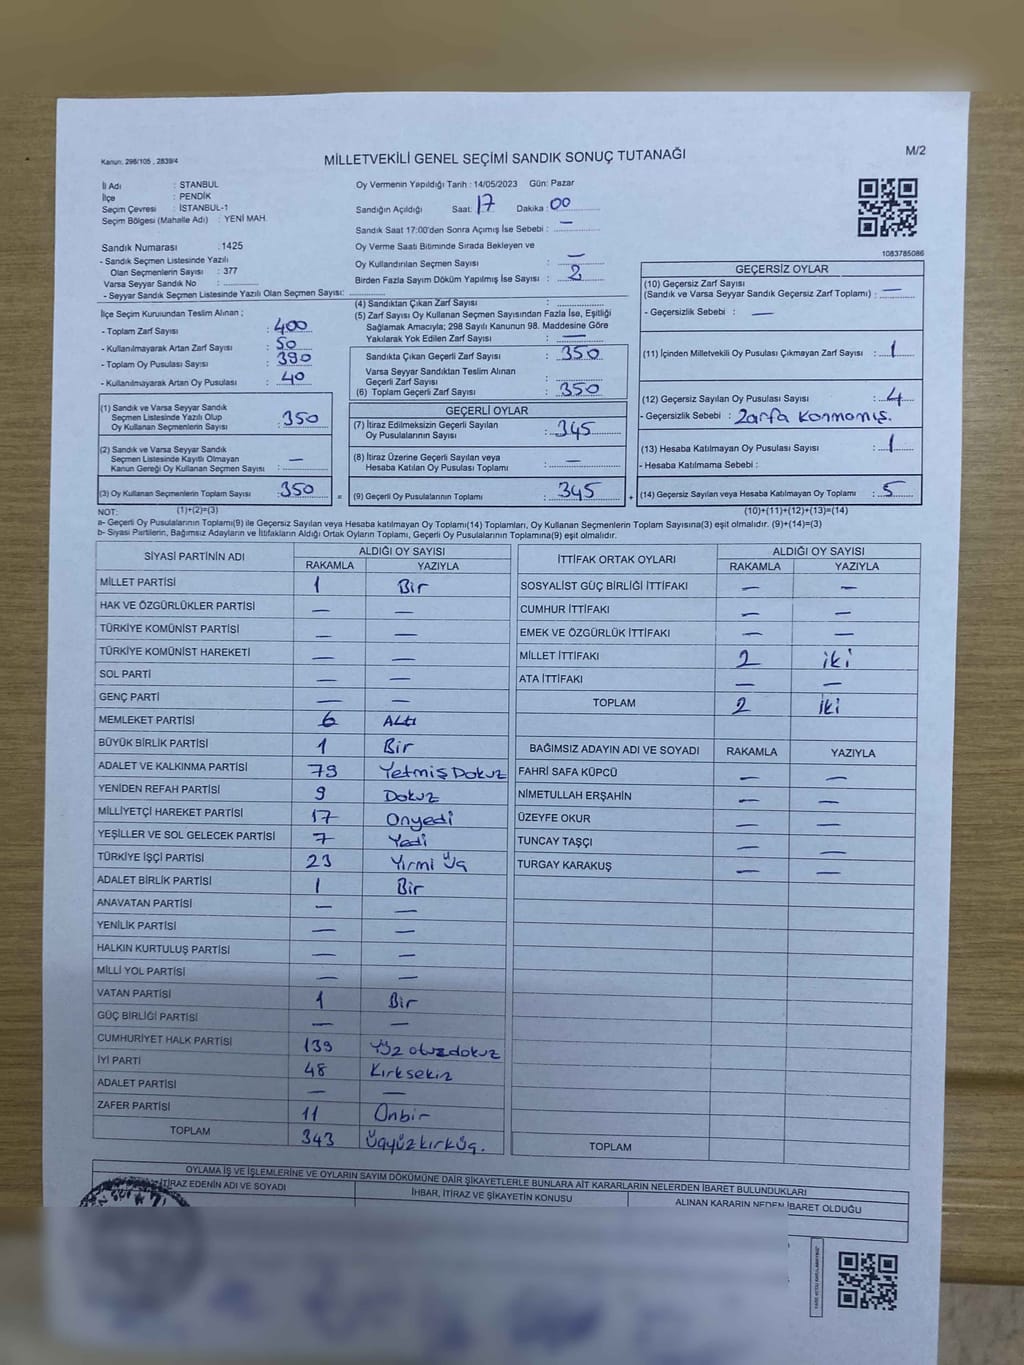 Kanun: 298/105 , 2839/4
MİLLETVEKİLİ GENEL SEÇİMİ SANDIK SONUÇ TUTANAĞI
M/2
İl Adı : STANBUL
İlçe : PENDİK
Seçim Çevresi : İSTANBUL-1
Seçim Bölgesi (Mahalle Adı) : YENİ MAH.
Sandık Numarası : 1425
- Sandık Seçmen Listesinde Yazılı
Olan Seçmenlerin Sayısı : 377
Varsa Seyyar Sandık No :
- Seyyar Sandık Seçmen Listesinde Yazılı Olan Seçmen Sayısı:
Oy Vermenin Yapıldığı Tarih : 14/05/2023 Gün: Pazar
Sandığın Açıldığı Saat: 17 Dakika : 00
Sandık Saat 17:00'den Sonra Açımış İse Sebebi : —
Oy Verme Saati Bitiminde Sırada Bekleyen ve
Oy Kullandırılan Seçmen Sayısı : —
Birden Fazla Sayım Döküm Yapılmış İse Sayısı : 2
1083785086
İlçe Seçim Kurulundan Teslim Alınan ;
- Toplam Zarf Sayısı : 400
- Kullanılmayarak Artan Zarf Sayısı : 50
- Toplam Oy Pusulası Sayısı : 390
- Kullanılmayarak Artan Oy Pusulası : 40
(1) Sandık ve Varsa Seyyar Sandık
Seçmen Listesinde Yazılı Olup
Oy Kullanan Seçmenlerin Sayısı : 350
(2) Sandık ve Varsa Seyyar Sandık
Seçmen Listesinde Kayıtlı Olmayan
Kanun Gereği Oy Kullanan Seçmen Sayısı : —
(3) Oy Kullanan Seçmenlerin Toplam Sayısı : 350
(4) Sandıktan Çıkan Zarf Sayısı :
(5) Zarf Sayısı Oy Kullanan Seçmen Sayısından Fazla İse, Eşitliği
Sağlamak Amacıyla; 298 Sayılı Kanunun 98. Maddesine Göre
Yakılarak Yok Edilen Zarf Sayısı : —
Sandıkta Çıkan Geçerli Zarf Sayısı : 350
Varsa Seyyar Sandıktan Teslim Alınan
Geçerli Zarf Sayısı :
(6) Toplam Geçerli Zarf Sayısı : 350
GEÇERLİ OYLAR
(7) İtiraz Edilmeksizin Geçerli Sayılan
Oy Pusulalarının Sayısı : 345
(8) İtiraz Üzerine Geçerli Sayılan veya
Hesaba Katılan Oy Pusulası Toplamı : —
= (9) Geçerli Oy Pusulalarının Toplamı : 345
GEÇERSİZ OYLAR
(10) Geçersiz Zarf Sayısı
(Sandık ve Varsa Seyyar Sandık Geçersiz Zarf Toplamı) : —
- Geçersizlik Sebebi : —
(11) İçinden Milletvekili Oy Pusulası Çıkmayan Zarf Sayısı : 1
(12) Geçersiz Sayılan Oy Pusulası Sayısı : 4
- Geçersizlik Sebebi : Zarfa Konmamış.
(13) Hesaba Katılmayan Oy Pusulası Sayısı : 1
- Hesaba Katılmama Sebebi :
+ (14) Geçersiz Sayılan veya Hesaba Katılmayan Oy Toplamı : 5
NOT: (1)+(2)=(3)
(10)+(11)+(12)+(13)=(14)
a- Geçerli Oy Pusulalarının Toplamı(9) ile Geçersiz Sayılan veya Hesaba katılmayan Oy Toplamı(14) Toplamları, Oy Kullanan Seçmenlerin Toplam Sayısına(3) eşit olmalıdır. (9)+(14)=(3)
b- Siyasi Partilerin, Bağımsız Adayların ve İttifakların Aldığı Ortak Oyların Toplamı, Geçerli Oy Pusulalarının Toplamına(9) eşit olmalıdır.
SİYASİ PARTİNİN ADI ALDIĞI OY SAYISI
RAKAMLA YAZIYLA
MİLLET PARTİSİ 1 Bir
HAK VE ÖZGÜRLÜKLER PARTİSİ — —
TÜRKİYE KOMÜNİST PARTİSİ — —
TÜRKİYE KOMÜNİST HAREKETİ — —
SOL PARTİ — —
GENÇ PARTİ — —
MEMLEKET PARTİSİ 6 Altı
BÜYÜK BİRLİK PARTİSİ 1 Bir
ADALET VE KALKINMA PARTİSİ 79 Yetmiş Dokuz
YENİDEN REFAH PARTİSİ 9 Dokuz
MİLLİYETÇİ HAREKET PARTİSİ 17 Onyedi
YEŞİLLER VE SOL GELECEK PARTİSİ 7 Yedi
TÜRKİYE İŞÇİ PARTİSİ 23 Yirmi Üç
ADALET BİRLİK PARTİSİ 1 Bir
ANAVATAN PARTİSİ — —
YENİLİK PARTİSİ — —
HALKIN KURTULUŞ PARTİSİ — —
MİLLİ YOL PARTİSİ — —
VATAN PARTİSİ 1 Bir
GÜÇ BİRLİĞİ PARTİSİ — —
CUMHURİYET HALK PARTİSİ 139 Yüz otuzdokuz
İYİ PARTİ 48 Kırksekiz
ADALET PARTİSİ — —
ZAFER PARTİSİ 11 Onbir
TOPLAM 343 Üçyüzkırküç.
İTTİFAK ORTAK OYLARI ALDIĞI OY SAYISI
RAKAMLA YAZIYLA
SOSYALİST GÜÇ BİRLİĞİ İTTİFAKI — —
CUMHUR İTTİFAKI — —
EMEK VE ÖZGÜRLÜK İTTİFAKI — —
MİLLET İTTİFAKI 2 iki
ATA İTTİFAKI — —
TOPLAM 2 iki
BAĞIMSIZ ADAYIN ADI VE SOYADI RAKAMLA YAZIYLA
FAHRİ SAFA KÜPCÜ — —
NİMETULLAH ERŞAHİN — —
ÜZEYFE OKUR — —
TUNCAY TAŞÇI — —
TURGAY KARAKUŞ — —
TOPLAM
OYLAMA İŞ VE İŞLEMLERİNE VE OYLARIN SAYIM DÖKÜMÜNE DAİR ŞİKAYETLERLE BUNLARA AİT KARARLARIN NELERDEN İBARET BULUNDUKLARI
İTİRAZ EDENİN ADI VE SOYADI İHBAR, İTİRAZ VE ŞİKAYETİN KONUSU ALINAN KARARIN NEDEN İBARET OLDUĞU